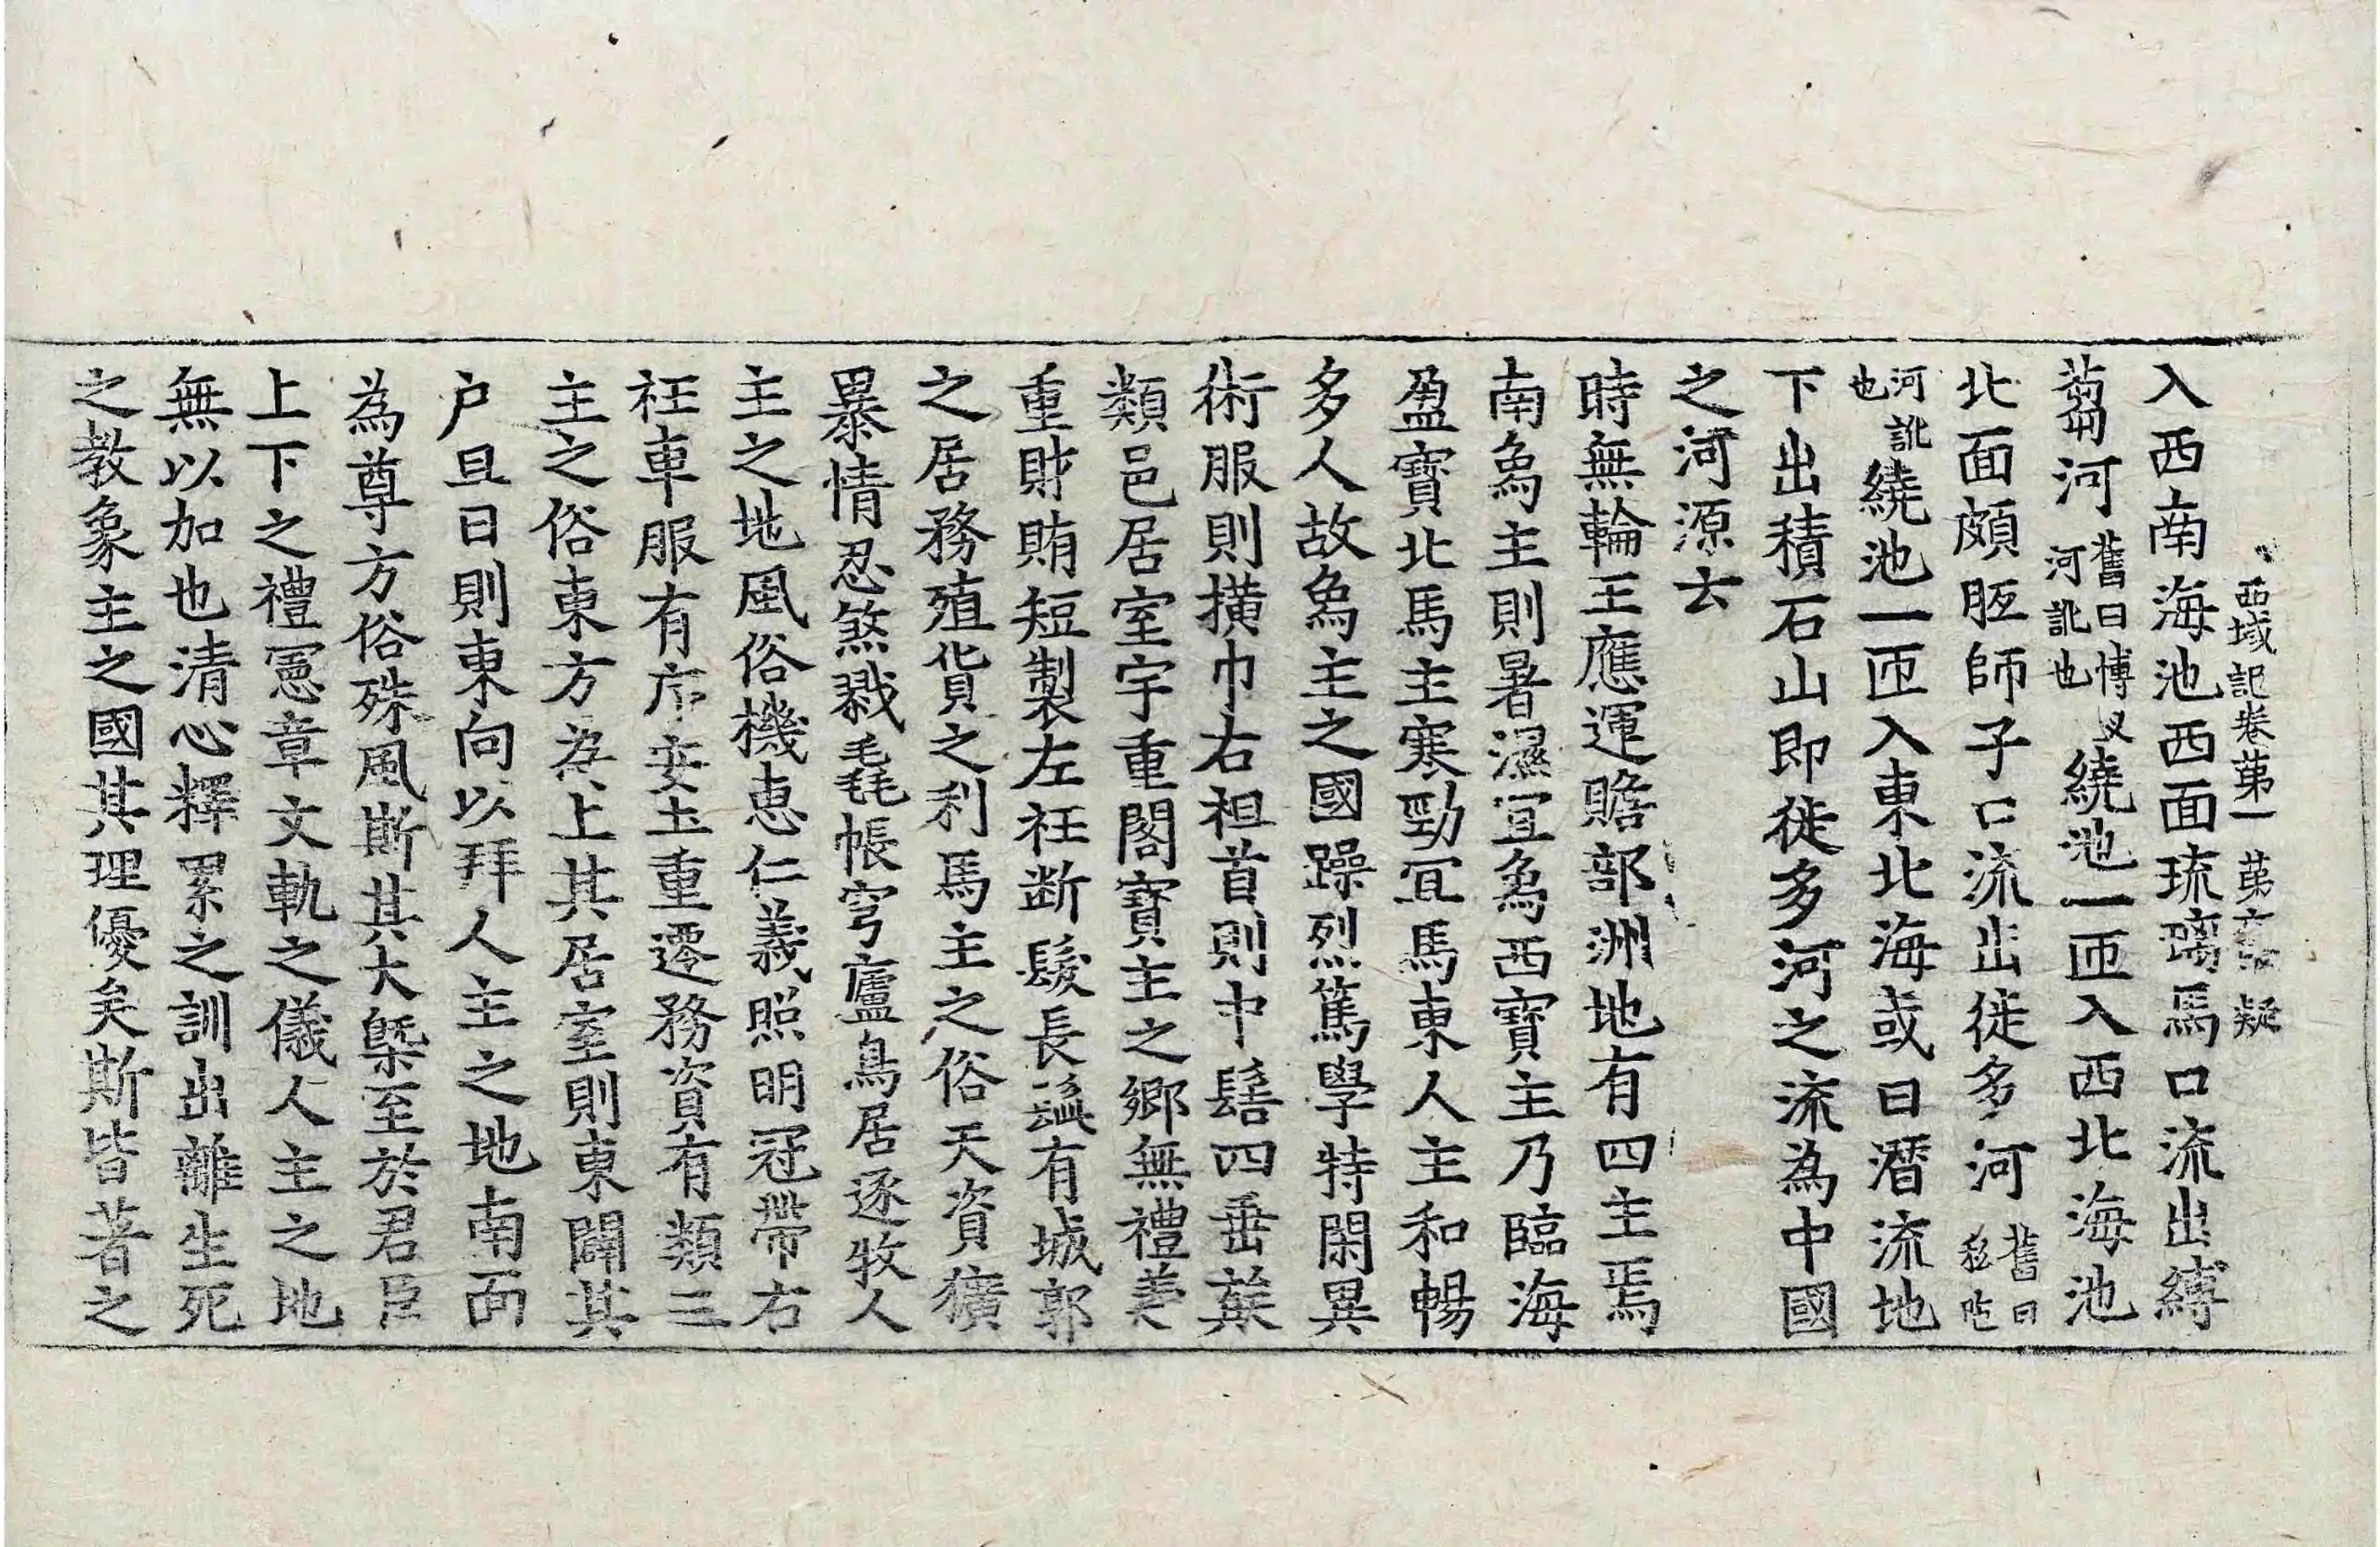 西域記卷第一 第六張 疑
入西南海池西面琉璃馬口流出縛
蒭河舊曰博叉河訛也繞池一匝入西北海池
北面頗胝師子口流出徙多河舊曰私陁
河訛也繞池一匝入東北海或曰潛流地
下出積石山即徙多河之流為中國
之河源云
時無輪王應運贍部洲地有四主焉
南象主則暑濕宜象西寶主乃臨海
盈寶北馬主寒勁宜馬東人主和暢
多人故象主之國躁烈篤學特閑異
術服則撗巾右袒首則中髻四垂族
類邑居室宇重閣寶主之鄉無禮義
重財賄短製左衽断髮長髭有城郭
之居務殖貨之利馬主之俗天資獷
暴情忍煞戮毳帳穹廬鳥居逐牧人
主之地風俗機惠仁義照明冠帶右
衽車服有序安土重遷務資有類三
主之俗東方為上其居室則東闢其
户旦日則東向以拜人主之地南面
為尊方俗殊風斯其大槩至於君臣
上下之禮憲章文軌之儀人主之地
無以加也清心釋累之訓出離生死
之教象主之國其理優矣斯皆著之